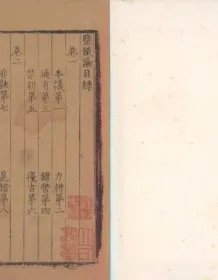 鹽鐵論目録
卷一
本議第一 力耕第二
通有第三 錯幣第四
禁耕第五 復古第六
卷二
非鞅第七 晁錯第八